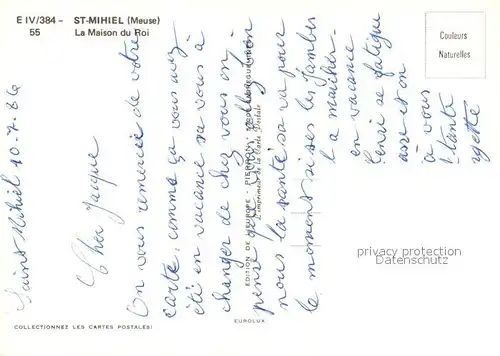 E IV/384 - ST-MIHIEL (Meuse)
55 La Maison du Roi
Couleurs
Naturelles
Saint Mihiel 10.7.86
Cher Jacque
On vous remercie de votre
carte, comme ça vous avez
été en vacance sa vous à
changer de chez vous on
pense
nous la santé sa va pour
le moment si ses les Jambes
l a
en vacance
Henri se fatigue
asse et on
à vous
tante
ygette
EDITION DE L'EUROPE - PIERRON -
L'imprimeur de la Carte Postale
privacy protection
Datenschutz
COLLECTIONNEZ LES CARTES POSTALES!
EUROLUX